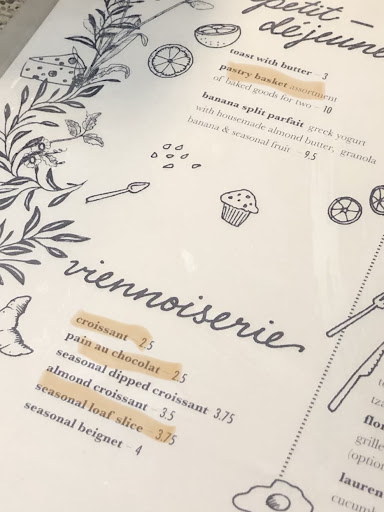 petit-
dejeune
toast with butter – 3
pastry basket assortment
of baked goods for two – 10
banana split parfait greek yogurt
with housemade almond butter, granola
banana & seasonal fruit – 9.5
viennoiserie
croissant – 2.5
pain au chocolat – 2.5
seasonal dipped croissant 3.75
almond croissant – 3.5
seasonal loaf slice – 3.75
seasonal beignet – 4
flor
grille
(option
lauren
cucumb